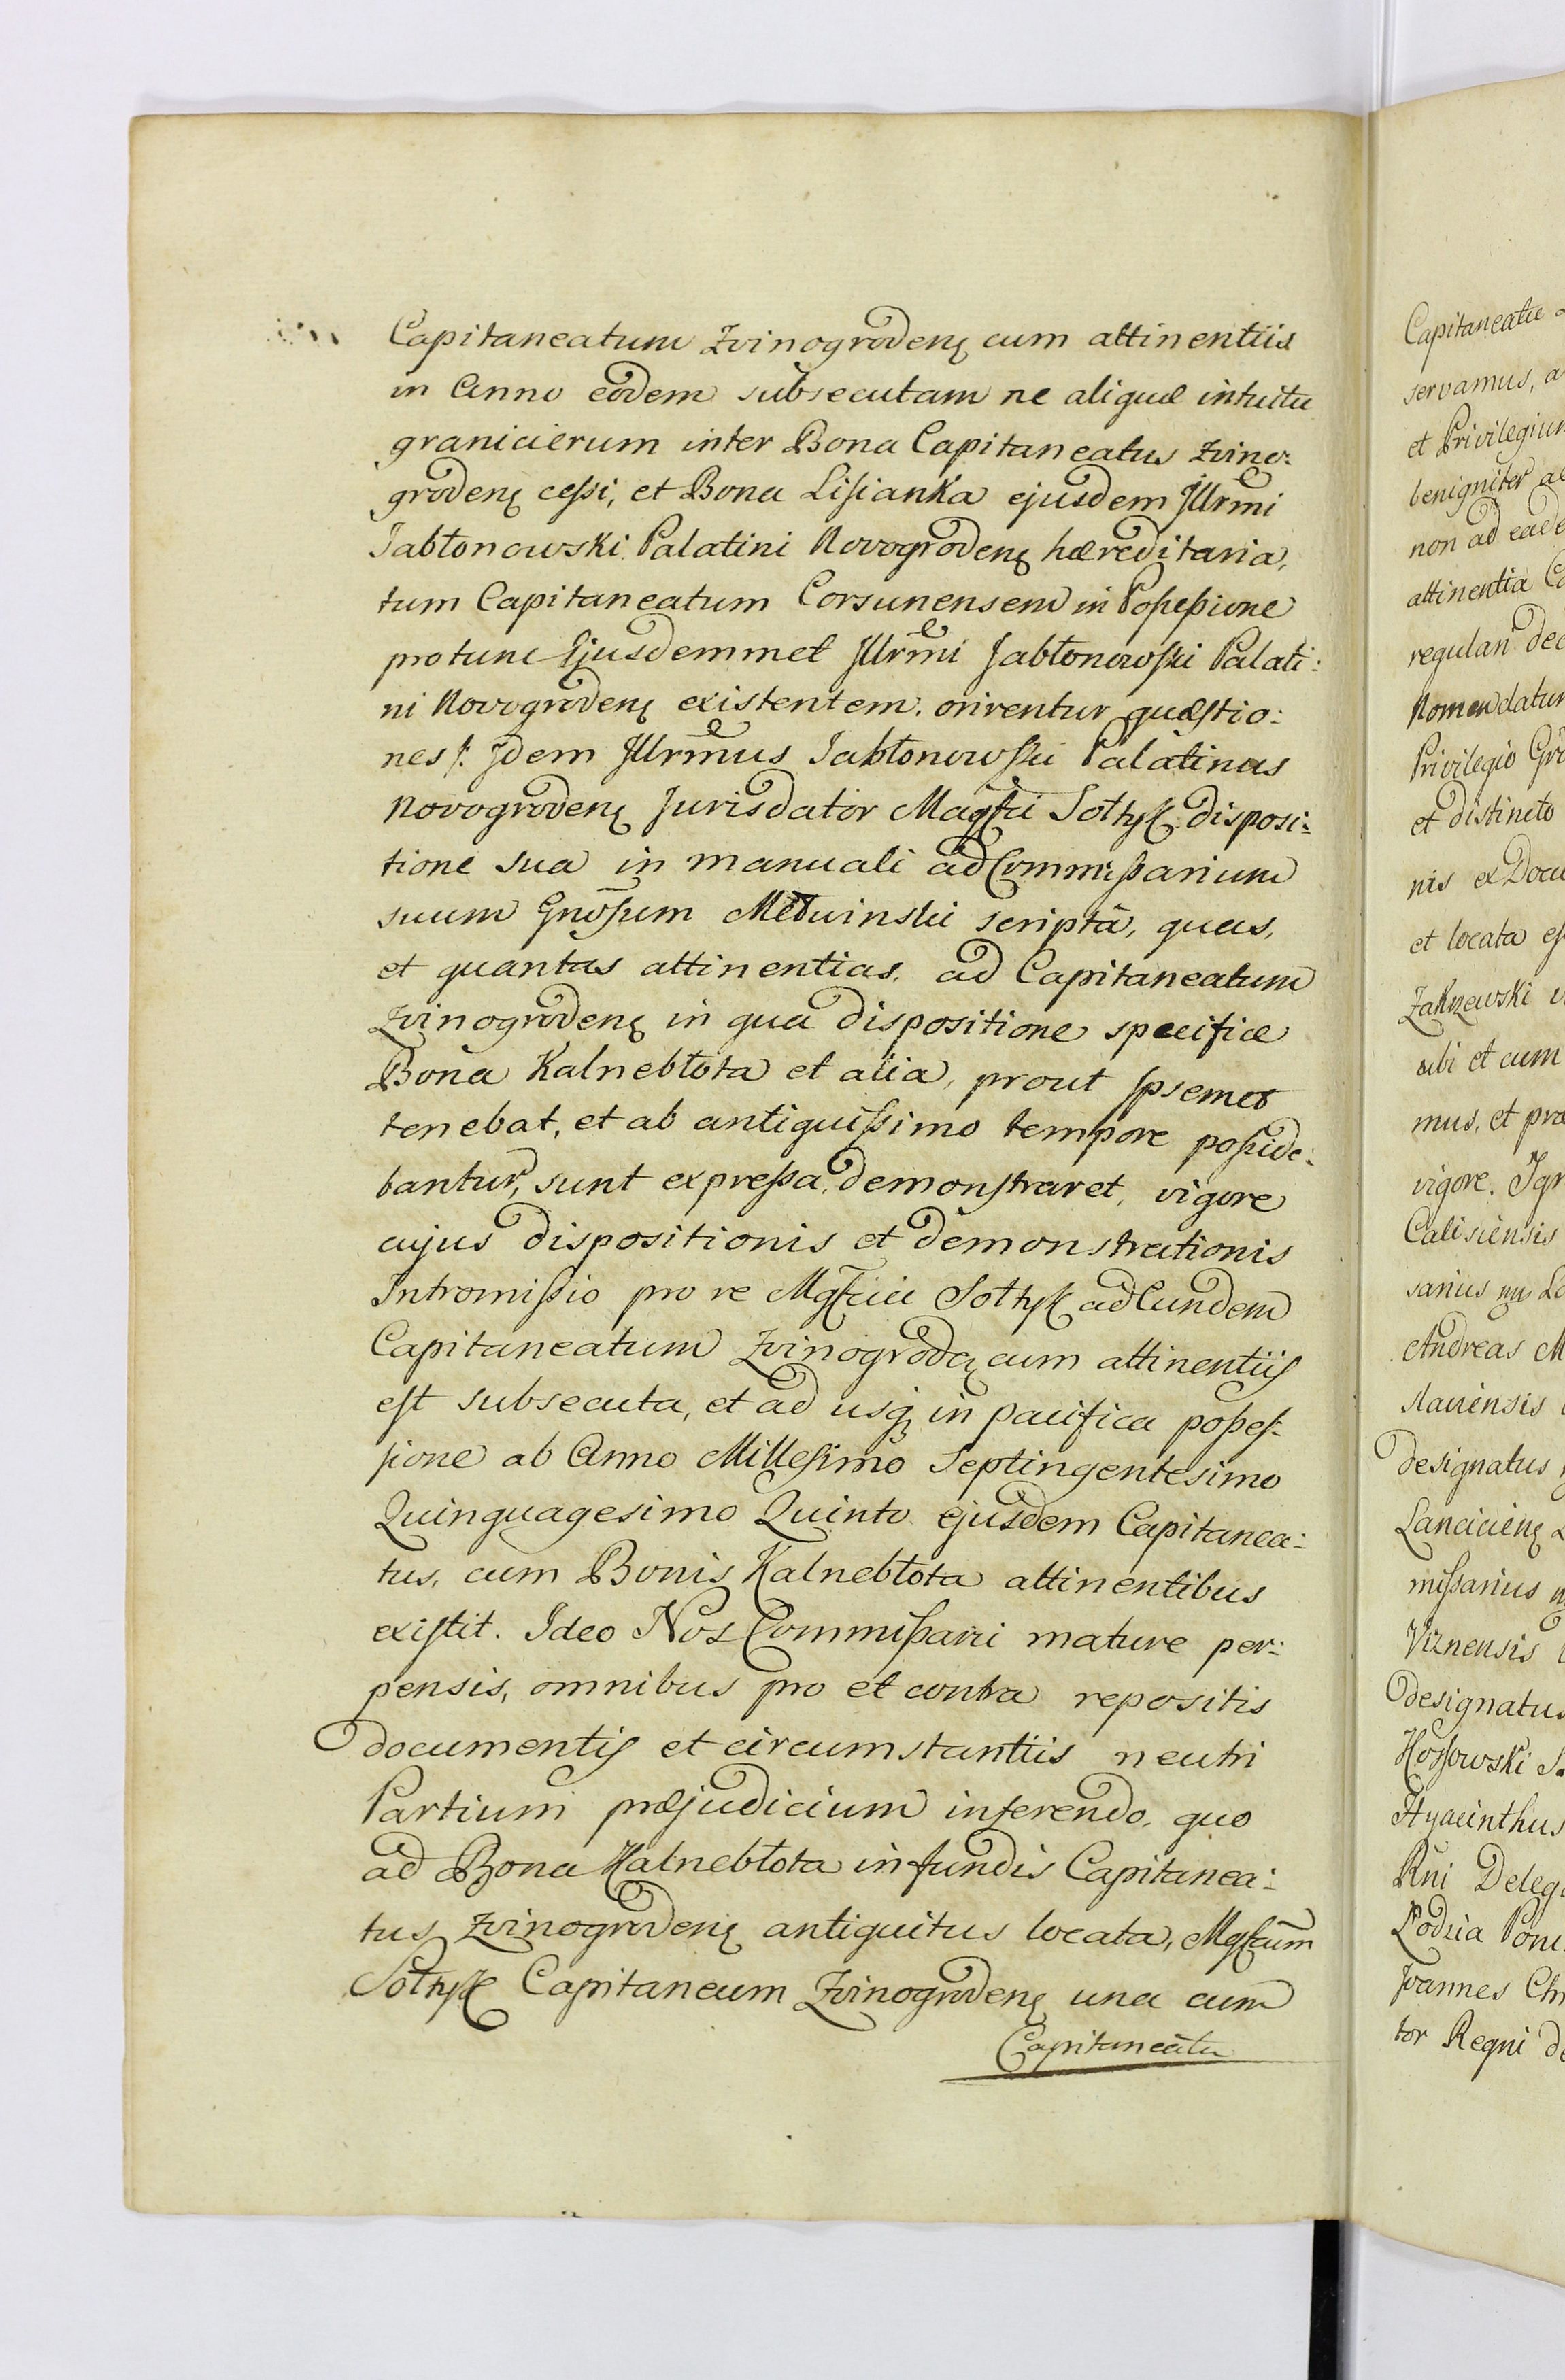 Capitaneatum Zvinogrodenę cum attinentiis
in Anno eodem subsecutam ne aliquæ intuitu
granicierum inter Bona Capitaneatus Zvino:
grodenę cessi, et Bona Lisianka ejusdem Illrmi
Jabłonowski Palatini Novogrodenę hæreditaria,
tum Capitaneatum Corsunensem in Possessione
protunc Ejusdemmet Illrmi Jabłonowski Palati:
ni Novogrodenę existentem, orirentur quæstio:
nes /: Idem Illrmus Jabłonowski Palatinus
Novogrodenę Jurisdator Magfci Sołtyk disposi:
tione sua in manuali ad Commissarium
suum Gnosum Metwinski scripta, quas,
et quantas attinentias, ad Capitaneatum
Zvinogrodenę in qua dispositione specifice
Bona Kalnebłota et alia, prout Ipsemet
tenebat, et ab antiquissimo tempore posside:
bantur, sunt expressa, demonstraret, vigore
cujus dispositionis et demonstrationis
Intromissio pro re Mgfici Sołtyk ad Eundem
Capitaneatum Zvinogrodę cum attinentiis
est subsecuta, et ad usq in pacifica posses:
sione ab Anno Millesimo Septingentesimo
Quinquagesimo Quinto ejusdem Capitanea:
tus, cum Bonis Kalnebłota attinentibus
existit. Ideo Nos Commissarii mature per:
pensis, omnibus pro et contra repositis
documentis et circumstantiis neutri
Partium præjudicium inferendo, quo
ad Bona Kalnebłota in fundis Capitanea:
tus Zvinogrodenę antiquitus locata, Mgfcum
Sołtyk Capitaneum Zvinogrodenę una cum
Capitaneatu
Capitaneatu
servamus, a
et Privilegium
benigniter
non ad eade
attinentia
regulari dec
Nomendatur
Privilegio
et distincto
nis ex Docu
et locata
Zakrzewski
ubi et cum
mus, et
vigore. Ign
Calisiensis
sarius
Andreas M
slaviensis
designatus
Lancicienę
missarius
Viznensis
designatus
Hossowski
Hyacinthus
Rni Delega
Łodzia Poni
Joannes Ch
tor Regni de